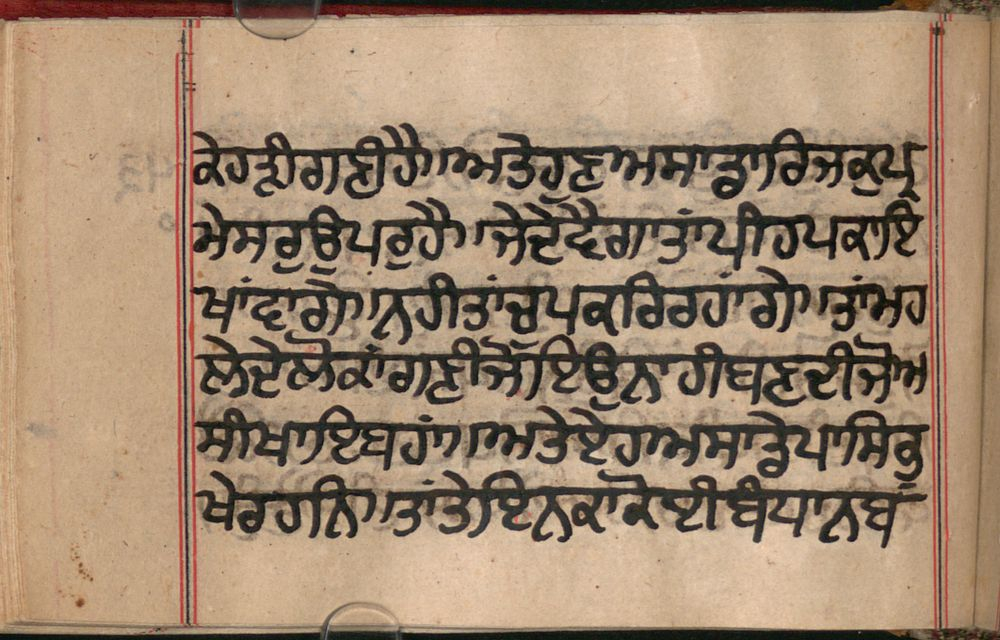 ਕੇਹਣੀਗਣੀਹੈ॥ਅਤੇਹੁਣਅਸਾਡਾਰਿਜਕੁਪ੍ਰ
ਮੇਸਰੁਉਪਰੁਹੈ॥ਜੇਦੇਵੈਗਾਤਾਂਪੀਹਪਕਾਇ
ਖਾਂਵਾਗੇ॥ਨਹੀਤਾਂਚੁਪਕਰਿਰਹਾਂਗੇ॥ਤਾਂਮਹ
ਲੇਦੇਲੋਕਾਂਗਣੀਜੋਇਉਨਾਹੀਬਣਦੀਜੋਅ
ਸੀਖਾਇਬਹਾਂ॥ਅਤੇਏਹਅਸਾਡੇਪਾਸਿਕੁ
ਖੇਰਹਨਿ॥ਤਾਂਤੇਇਨਕਾਕੋਈਬੰਧਾਨਬੰ